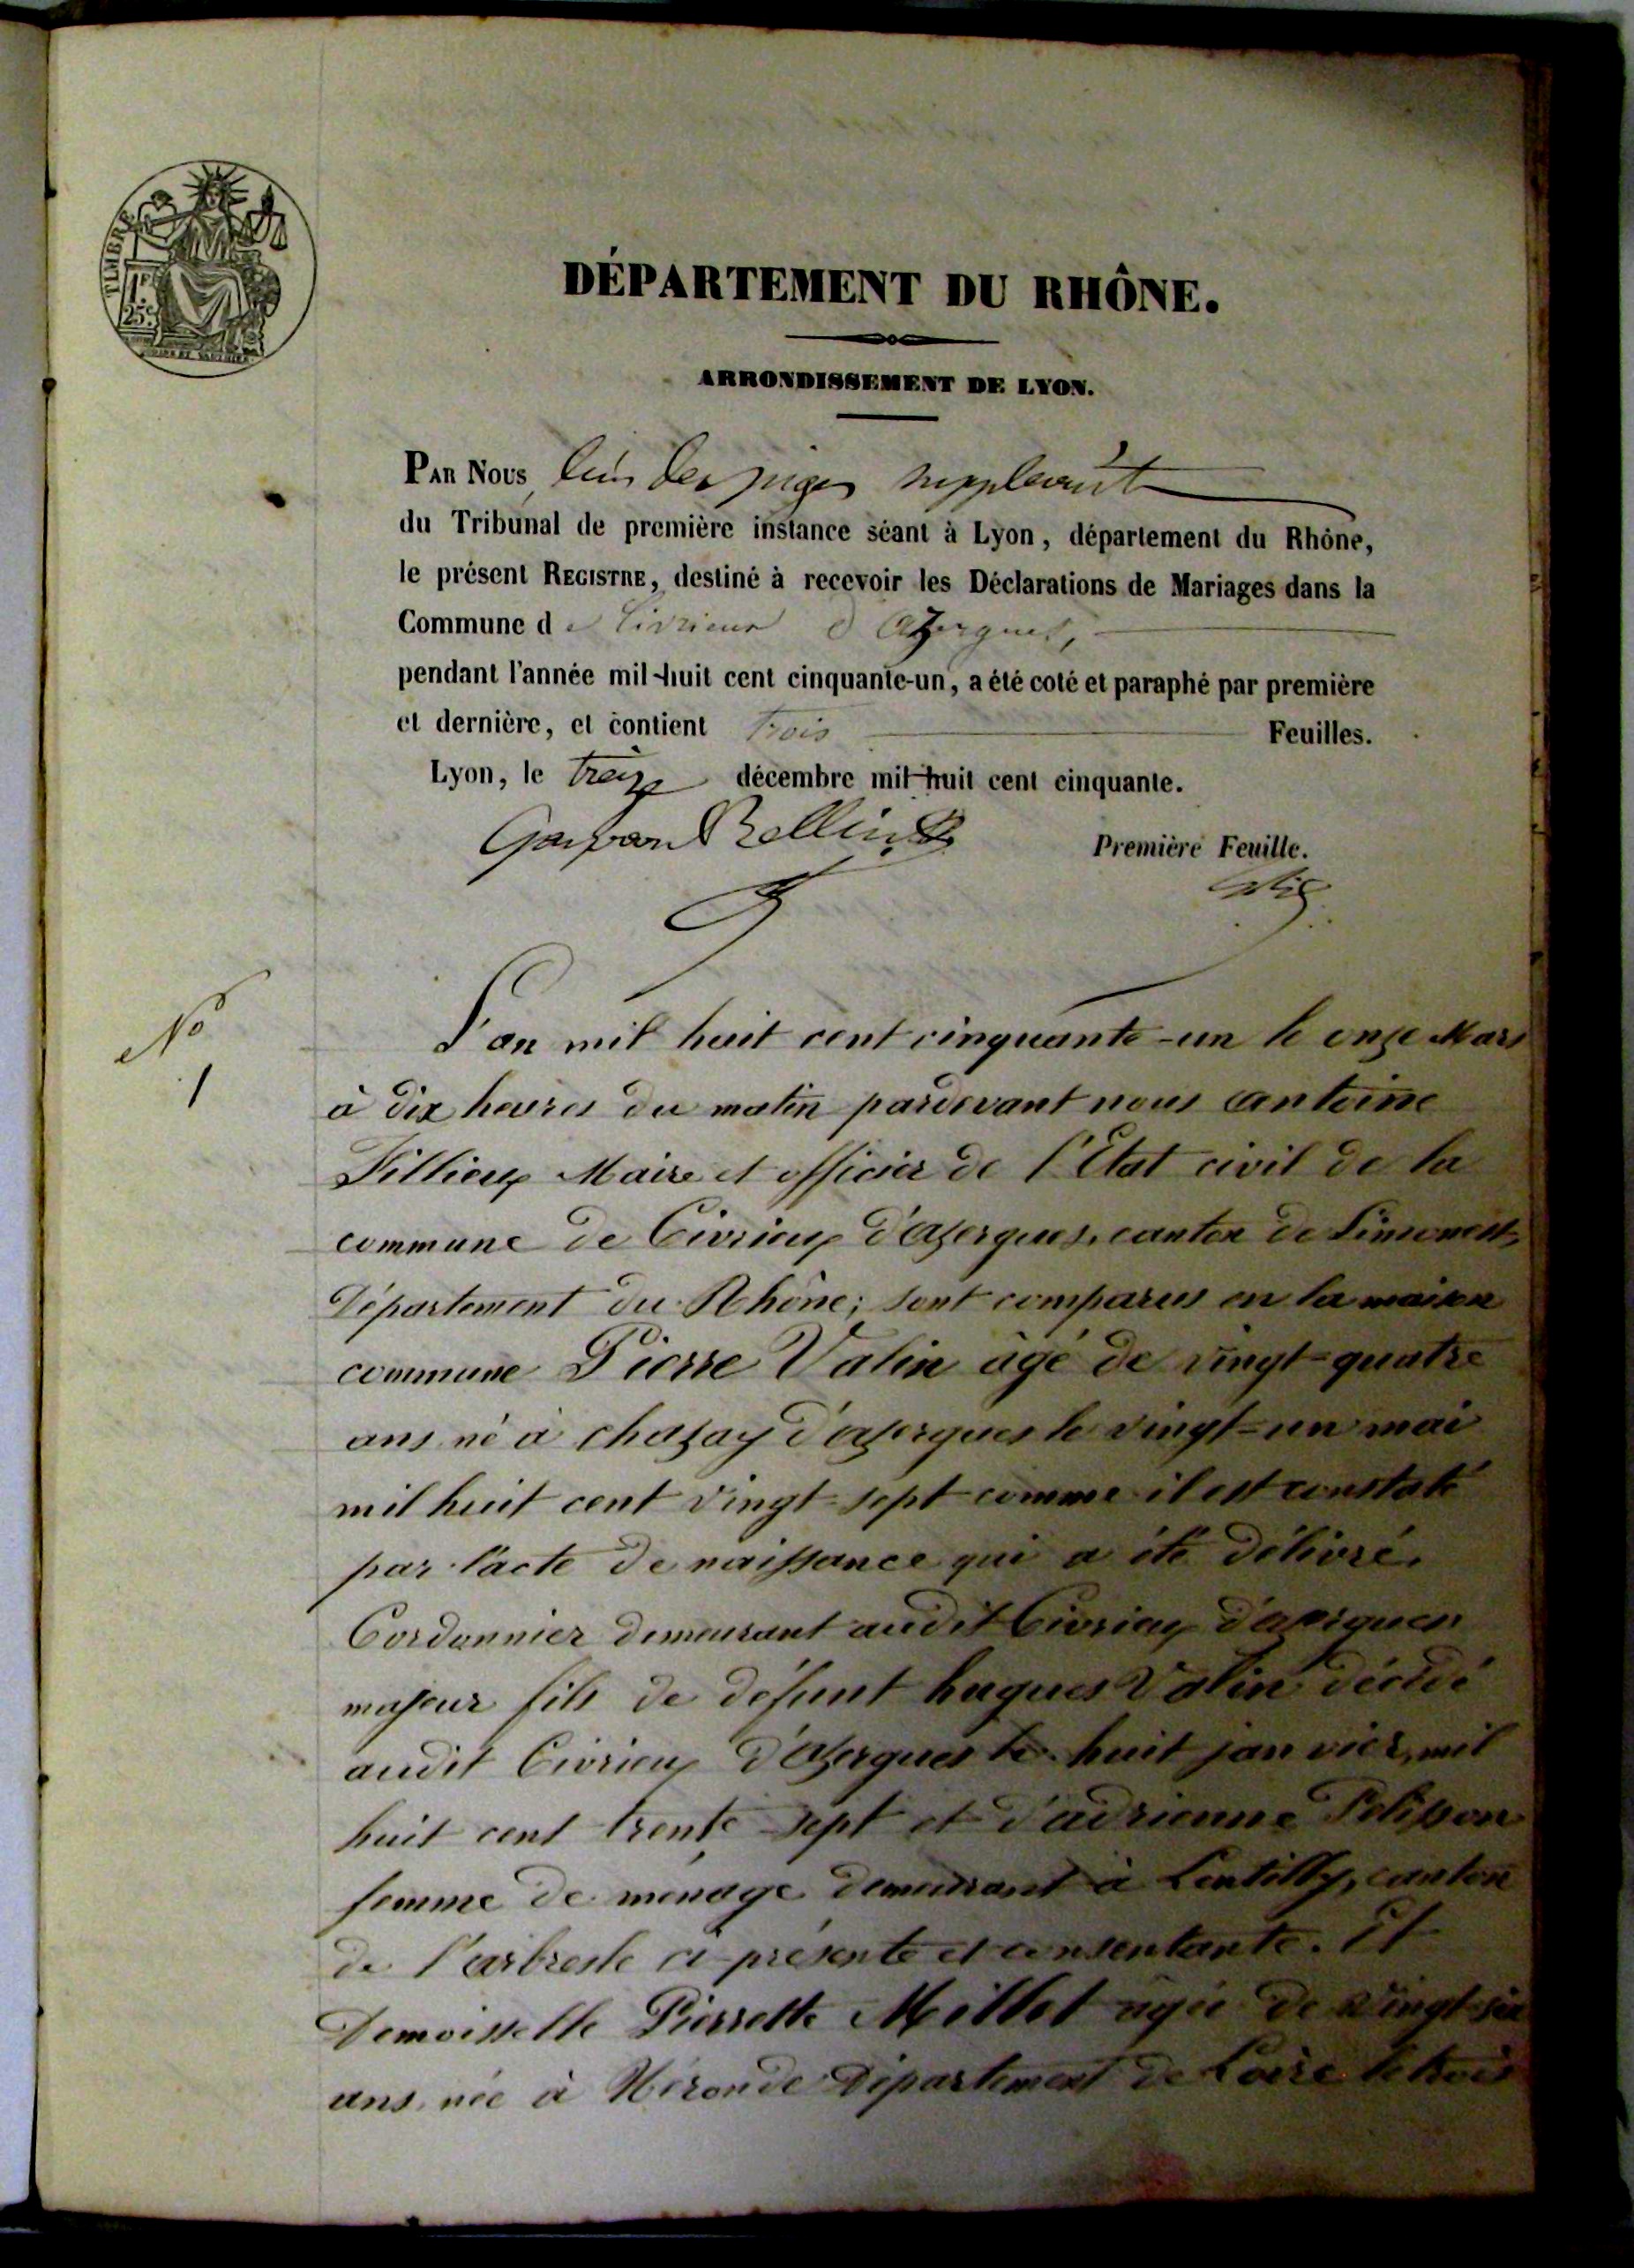 TIMBRE
25c
DÉPARTEMENT DU RHÔNE.
ARRONDISSEMENT DE LYON.
PAR NOUS, l'un des juges suppléant
du Tribunal de première instance séant à Lyon, département du Rhône,
le présent REGISTRE, destiné à recevoir les Déclarations de Mariages dans la
Commune de Civrieux d'Azergues,
pendant l'année mil-huit cent cinquante-un, a été coté et paraphé par première
et dernière, et contient trois Feuilles.
Lyon, le treize décembre mil-huit cent cinquante.
Gaspard Bellin
Première Feuille.
No
1
L'an mil huit cent cinquante-un le onze Mars
à dix heures du matin pardevant nous antoine
Fillieux Maire et officier de l'Etat civil de la
commune de Civrieux d'azergues, canton de Limonest,
Département du Rhône; sont comparus en la maison
commune Pierre Valin agé de vingt-quatre
ans né à chazay d'azergues le vingt-un mai
mil huit cent vingt-sept comme il est constaté
par l'acte de naissance qui a été délivré.
Cordonnier demeurant audit Civrieux d'azergues
majeur fils de défunt hugues Valin décédé
audit Civrieux d'azergues le huit janvier, mil
huit cent trente sept et d'adrienne Pelisson
femme de ménage demeurant à Lentilly, canton
de l'arbresle ci-présente et consentante. Et
Demoiselle Pierrette Millet agée de vingt-six
ans, née à Néronde Département de Loire le trois